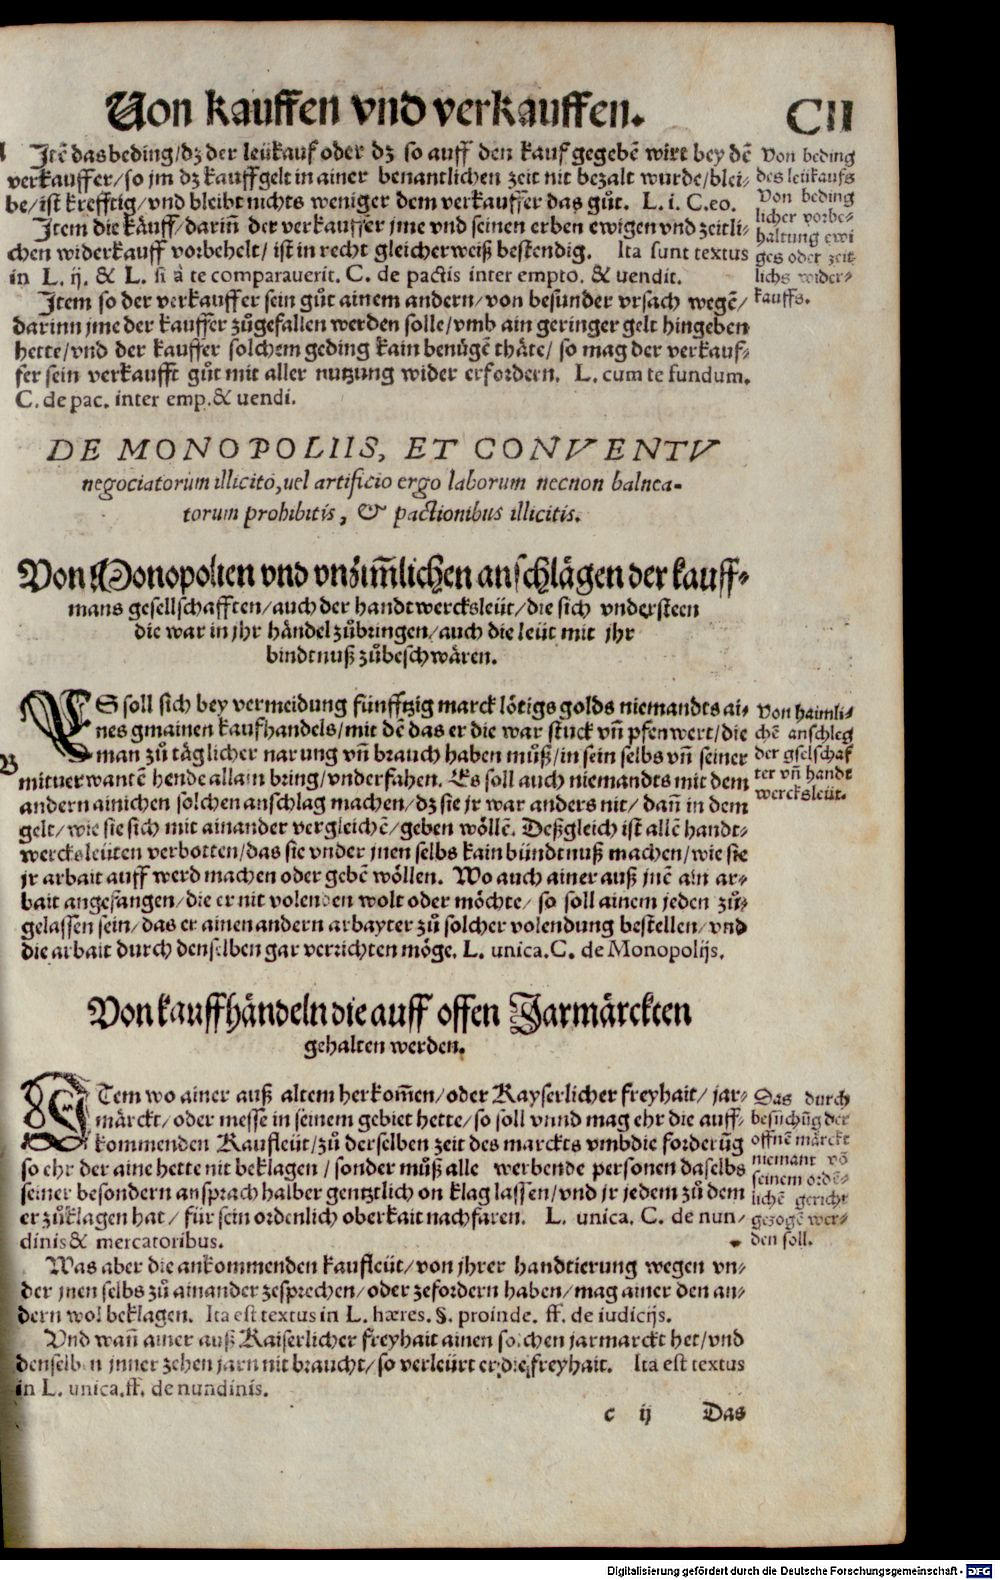 Von kauffen vnd verkauffen. CII
Jtē das beding/dz der leükauf oder dz so auff den kauf gegebē wirt bey dē
verkauffer/so jm dz kauffgelt in ainer benantlichen zeit nit bezalt wurde/blei-
be/ist krefftig/vnd bleibt nichts weniger dem verkauffer das gůt. L. i. C. eo.
Jtem die käuff/darin̄ der verkauffer jme vnd seinen erben ewigen vnd zeitli-
chen widerkauff vorbehelt/ist in recht gleicherweiß bestendig. Ita sunt textus
in L. ij. & L. si à te comparauerit. C. de pactis inter empto. & uendit.
Jtem so der verkauffer sein gůt ainem andern/von besunder vrsach wegē/
darinn jme der kauffer zůgefallen werden solle/vmb ain geringer gelt hingeben
hette/vnd der kauffer solchem geding kain benügē thäte/so mag der verkauf-
fer sein verkaufft gůt mit aller nutzung wider erfordern. L. cum te fundum.
C. de pac. inter emp. & uendi.
Von beding
des leükaufs
Von beding
licher vorbe-
haltung ewi
ges oder zeit
lichs wider-
kauffs.
DE MONOPOLIIS, ET CONVENTV
negociatorum illicito, uel artificio ergo laborum necnon balnea-
torum prohibitis, & pactionibus illicitis.
Von Monopolien vnd vnzim̄lichen anschlägen der kauff-
mans gesellschafften/auch der handtwercksleüt/die sich vndersteen
die war in jhr händel zůbringen/auch die leüt mit jhr
bindtnuß zůbeschwären.
ES soll sich bey vermeidung fünfftzig marck lötigs golds niemandts ai-
nes gmainen kaufhandels/mit dē das er die war stuck vn̄ pfenwert/die
man zů täglicher narung vn̄ brauch haben můß/in sein selbs vn̄ seiner
B
mituerwantē hende allain bring/vnderfahen. Es soll auch niemandts mit dem
andern ainichen solchen anschlag machen/dz sie jr war anders nit/dan̄ in dem
gelt/wie sie sich mit ainander vergleichē/geben wöllē. Deßgleich ist allē handt-
wercksleüten verbotten/das sie vnder jnen selbs kain bündtnuß machen/wie sie
jr arbait auff werd machen oder gebē wöllen. Wo auch ainer auß jnē ain ar-
bait angefangen/die er nit volenden wolt oder möchte/so soll ainem jeden zů-
gelassen sein/das er ainen andern arbayter zů solcher volendung bestellen/vnd
die arbait durch denselben gar verrichten möge. L. unica. C. de Monopolijs.
Von haimli-
chē anschleg
der gselschaf
ter vn̄ handt
wercksleüt.
Von kauffhändeln die auff offen Jarmärckten
gehalten werden.
ITem wo ainer auß altem herkom̄en/oder Kayserlicher freyhait/jar-
märckt/oder messe in seinem gebiet hette/so soll vnnd mag ehr die auff-
kommenden Kaufleüt/zů derselben zeit des marckts vmb die forderūg
so ehr der aine hette nit beklagen/sonder můß alle werbende personen daselbs
seiner besondern ansprach halber gentzlich on klag lassen/vnd jr jedem zů dem
er zůklagen hat/für sein ordenlich oberkait nachfaren. L. unica. C. de nun-
dinis & mercatoribus.
Das durch
besůchūg der
offnē märckt
niemant vō
seinem ordē-
lichē gericht
gezogē wer-
den soll.
Was aber die ankommenden kaufleüt/von jhrer handtierung wegen vn-
der jnen selbs zů ainander zesprechen/oder zefordern haben/mag ainer den an-
dern wol beklagen. Ita est textus in L. hæres. §. proinde. ff. de iudicijs.
Vnd wan̄ ainer auß Kaiserlicher freyhait ainen solchen jarmarckt het/vnd
denselben jnner zehen jarn nit braucht/so verleürt er die freyhait. Ita est textus
in L. unica. ff. de nundinis.
c ij Das
Digitalisierung gefördert durch die Deutsche Forschungsgemeinschaft - DFG